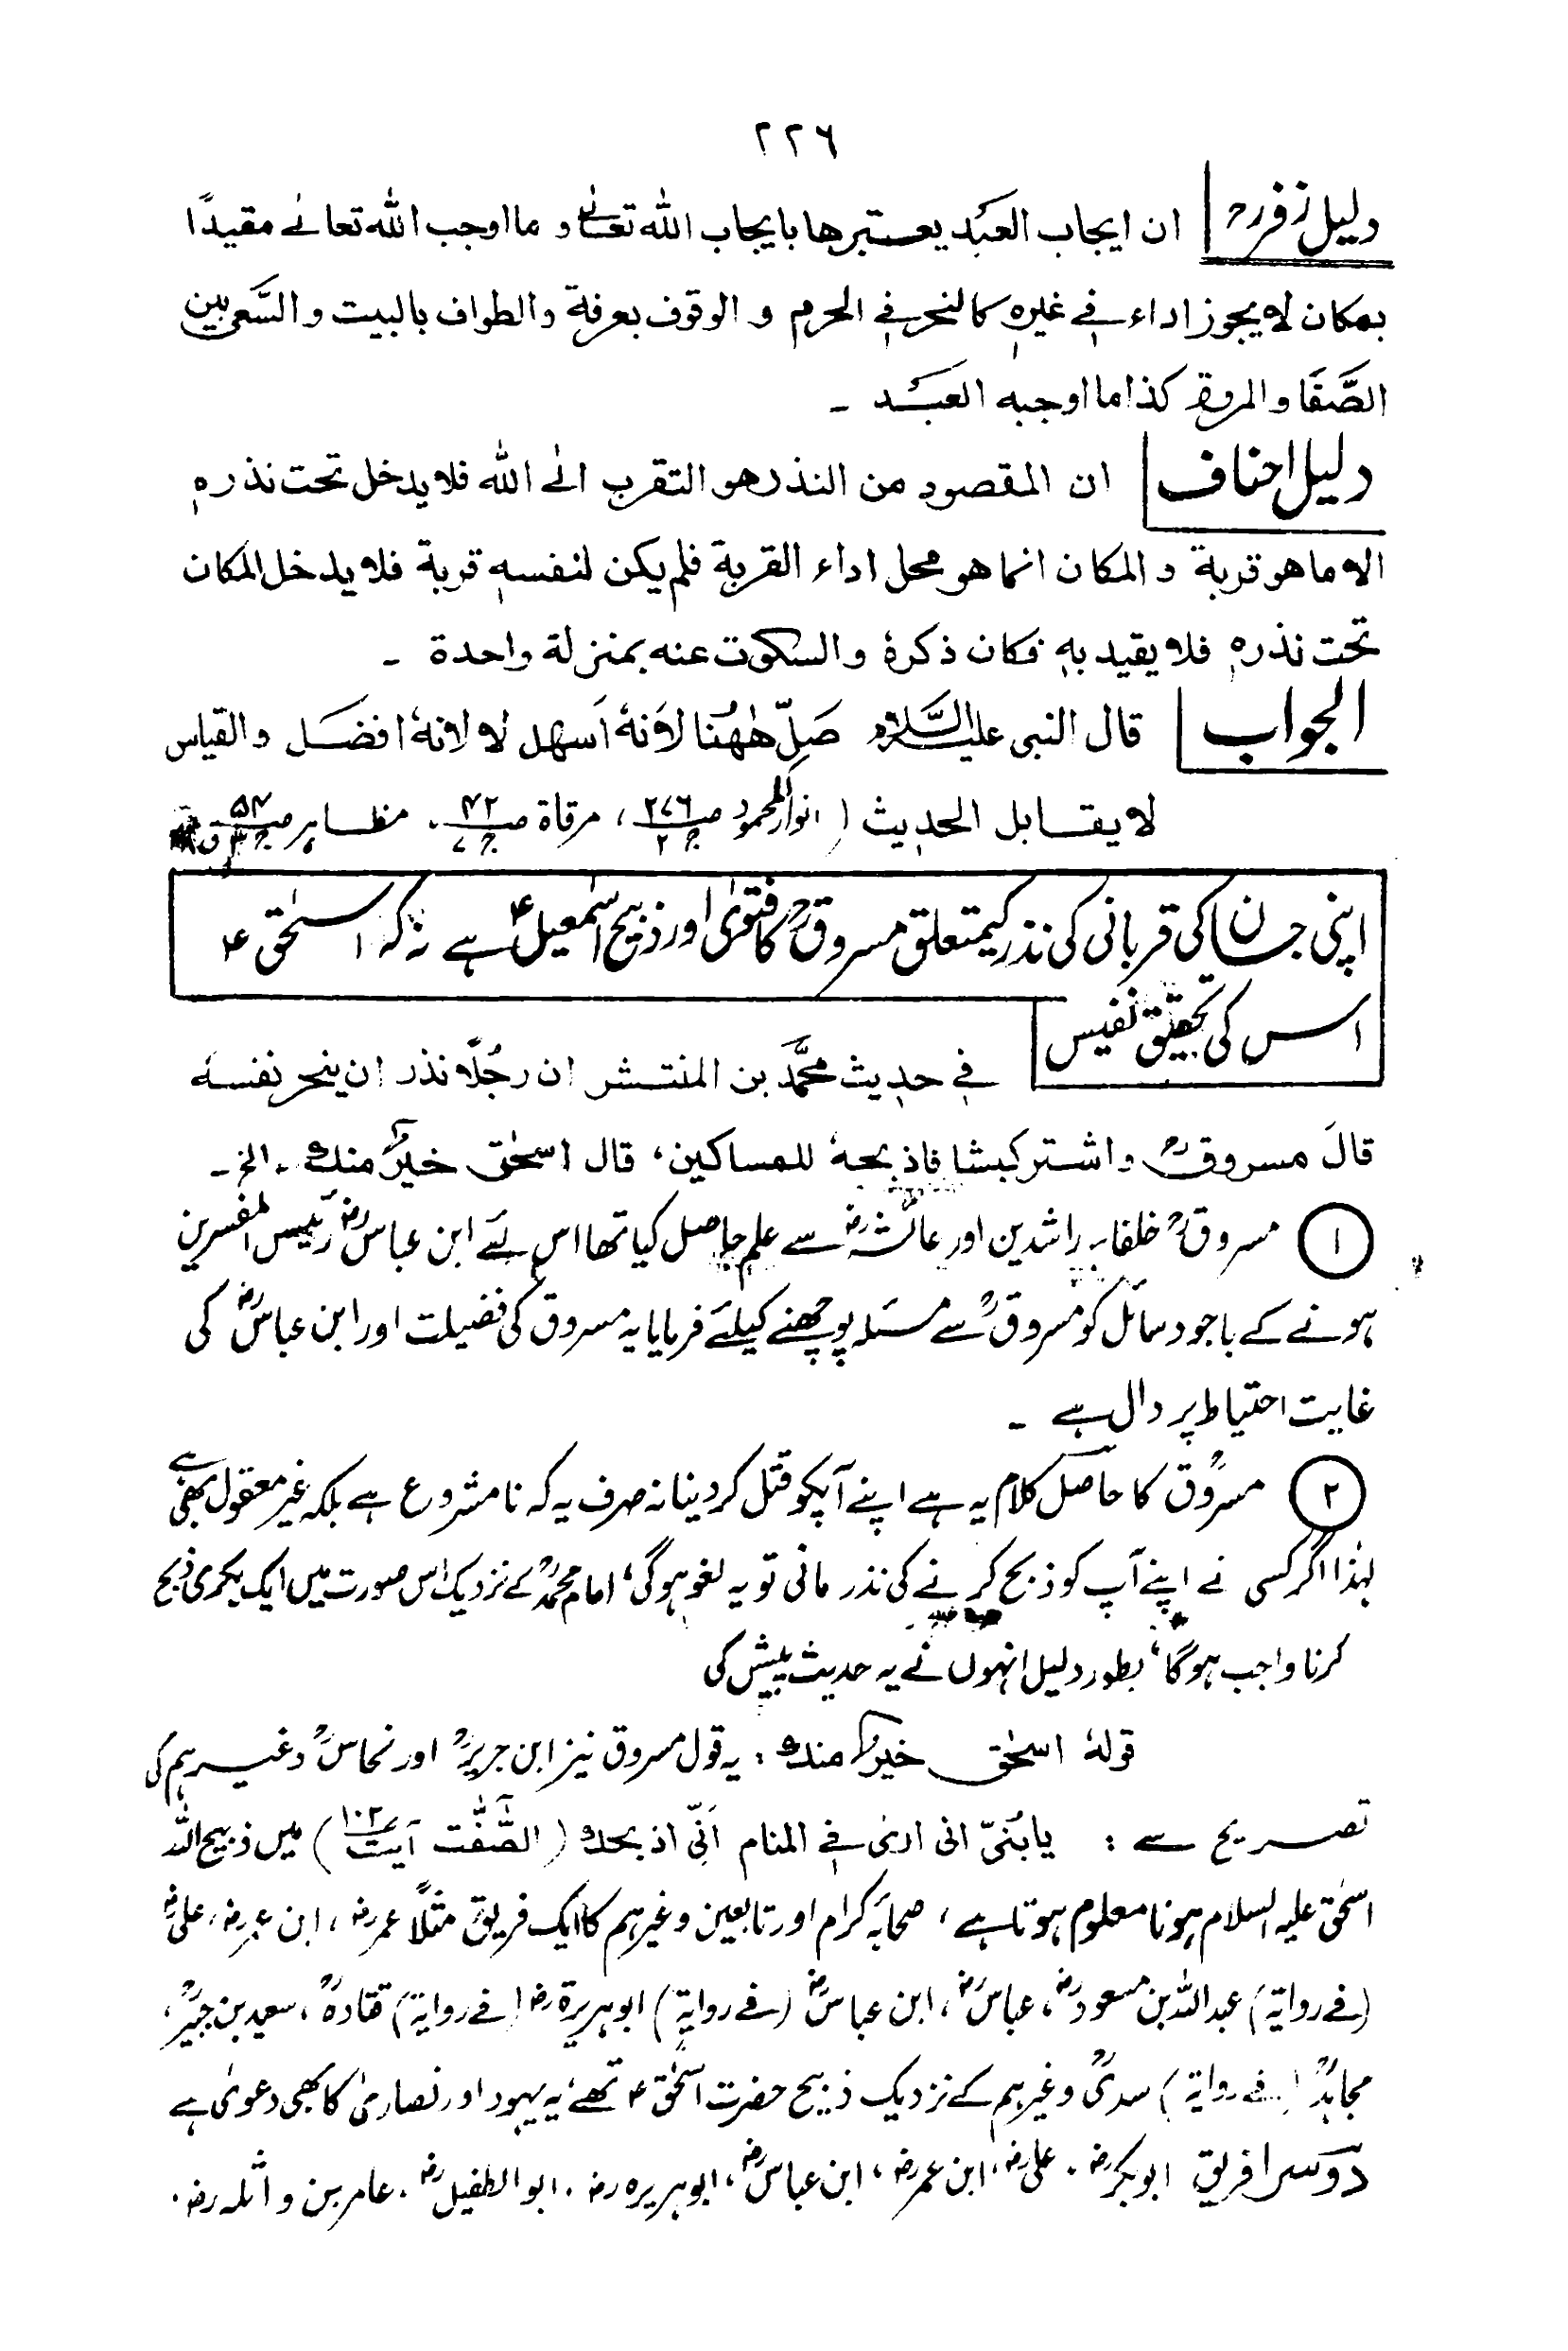 ۲۲٦
دلیل زفرؒ ان ایجاب العبد یعتبرها بایجاب الله تعالیٰ و ما اوجب الله تعالےٰ مقیدًا
بمکان لا یجوز اداء فے غیرہٖ کالنحر فے الحرم و الوقوف بعرفة والطواف بالبیت والسَّعی بین
الصَّفَا والمروة کذا ما اوجبه العبد ـ
دلیل احناف ان المقصود من النذر هو التقرب الےٰ الله فلا یدخل تحت نذرہٖ
الا ما هو قربة و المکان انما هو محل اداء القربة فلم یکن لنفسهٖ قربة فلا یدخل المکان
تحت نذرہٖ فلا یقید بهٖ فکان ذکرهٗ والسکوت عنه بمنزلة واحدة ـ
الجواب قال النبی علیہ السَّلام صَلِّ هٰهُنا لاَنهٗ اَسهل لا لانهٗ افضل والقیاس
لا یقابل الحدیث (انوار المحمود ص ۲۷٦ ج ۲، مرقاة ص ۴۲ ج ۷، مظاہر ص ۵۴
اپنی جان کی قربانی کی نذر کیمتعلق مسروقؒ کا فتویٰ اور ذبیح اسمٰعیلؑ ہے نہ کہ اسحٰقؑ
اس کی تحقیق نفیس فے حدیث محمَّد بن المنتشر ان رجُلًا نذر ان ینحر نفسهٗ
قالَ مسروقؒ واشتر کبشا فاذبحهٗ للمساکین، قال اسحٰق خیرٌ منك ۔ الخ ـ
① مسروقؒ خلفاء راشدین اور عائشہؓ سے علم حاصل کیا تھا اس لئے ابن عباسؓ رئیس المفسرین
ہونے کے باجود سائل کو مسروقؒ سے مسئلہ پوچھنے کیلئے فرمایا یہ مسروق کی فضیلت اور ابن عباسؓ کی
غایت احتیاط پر دال ہے ـ
② مسروقؒ کا حاصل کلام یہ ہے اپنے آپکو قتل کر دینا نہ صرف یہ کہ نامشروع ہے بلکہ غیر معقول بھی ہے
لہٰذا اگر کسی نے اپنے آپ کو ذبح کرنے کی نذر مانی تو یہ لغو ہوگی، امام محمدؒ کے نزدیک اس صورت میں ایک بکری ذبح
کرنا واجب ہوگا، بطور دلیل انہوں نے یہ حدیث پیش کی
قولهٗ اسحٰق خیرٌ منك : یہ قول مسروق نیز ابن جریرؒ اور نحاسؒ وغیرہم کی
تصریح سے : یابُنیّ انی اریٰ فے المنام اَنّی اذبحك (الصّٰٓفّٰت آیت ۱۰۲) میں ذبیح اللہ
اسحٰق علیہ السلام ہونا معلوم ہوتا ہے، صحابۂ کرام اور تابعین وغیرہم کا ایک فریق مثلًا عمرؓ، ابن عمرؓ، علیؓ
(فے روایۃ) عبداللہ بن مسعودؓ، عباسؓ، ابن عباسؓ (فے روایۃ) ابوہریرۃؓ (فے روایۃ) قتادہؒ، سعید بن جبیرؒ،
مجاہدؒ (فے روایۃ) سدیؒ وغیرہم کے نزدیک ذبیح حضرت اسحٰقؑ تھے، یہ یہود اور نصاریٰ کا بھی دعویٰ ہے
دوسرا فریق ابوبکرؓ، علیؓ، ابن عمرؓ، ابن عباسؓ، ابوہریرہؓ، ابو الطفیلؓ، عامر بن واثلہؓ،